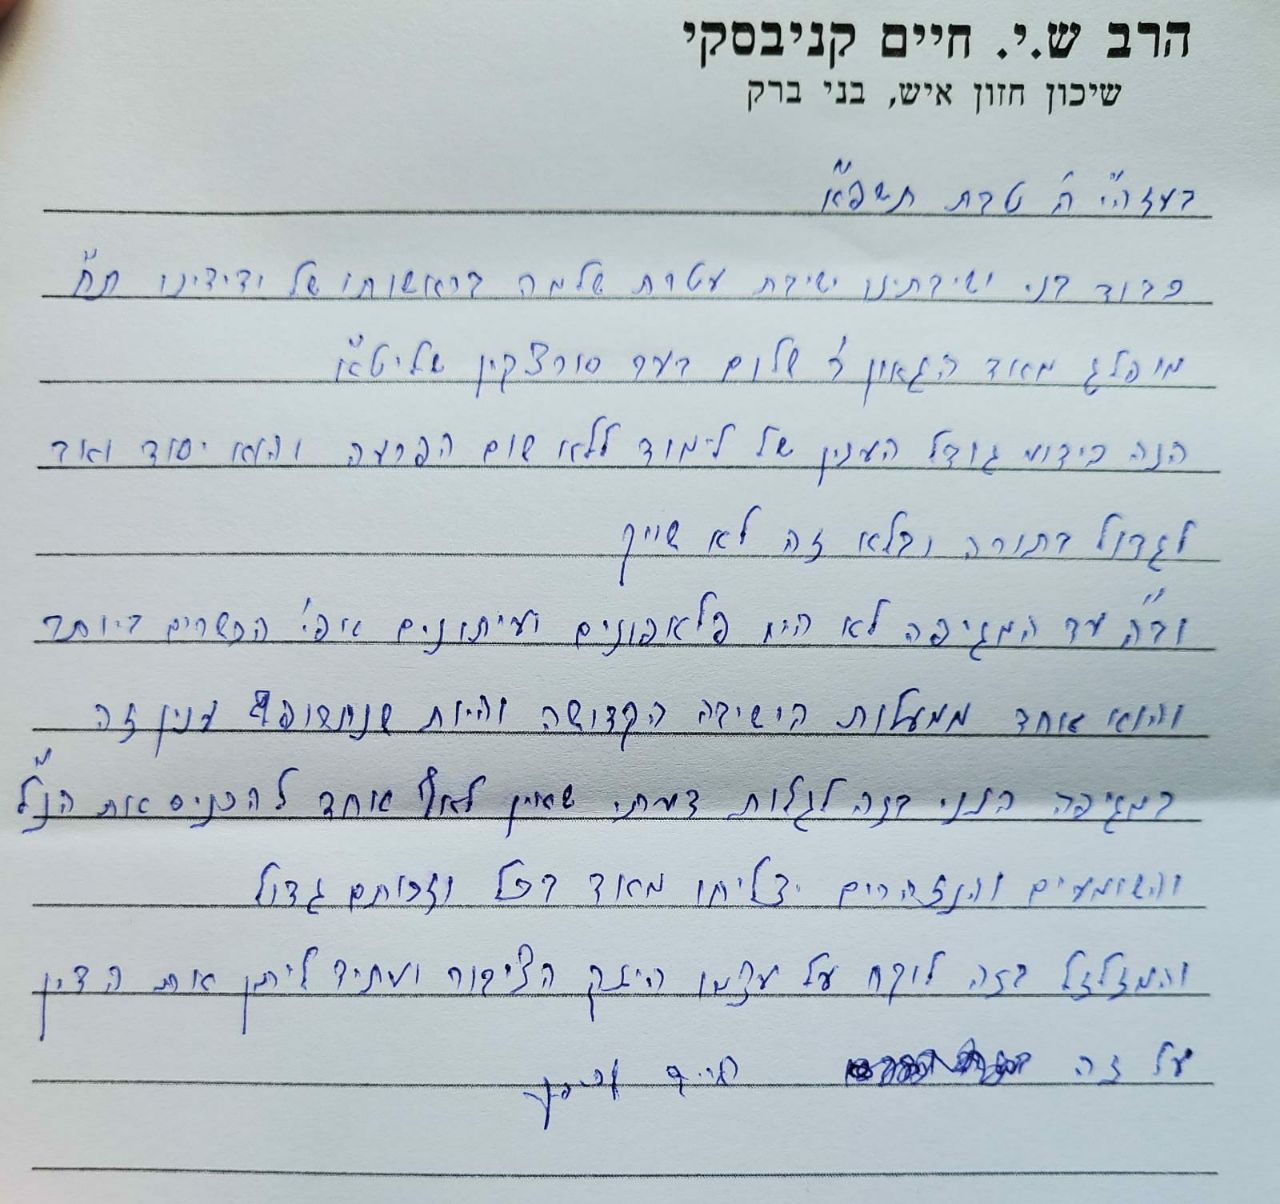 הרב ש.י. חיים קניבסקי
שיכון חזון איש, בני ברק
בעזהי"ת ה' טבת תשפ"א
כבוד בני ישיבתינו ישיבת עטרת שלמה בראשותו של ידידינו תח"
מופלג מאוד הגאון ר' שלום בער סורצקין שליט"א
הנה כידוע גודל הענין של לימוד ללא שום הפרעה והוא יסוד ואב
לגדול בתורה ובלא זה לא שייך
וב"ה עד המגיפה לא היו פלאפונים ועיתונים אפי' הכשרים ביותר
והוא אחד ממעלות הישיבה הקדושה והיות ענין זה
במגיפה הנני בזה לגלות דעתי שאין לאף אחד להכניס את הנ"ל
והשומעים והנזהרים יצליחו מאוד בכל וזכותם גדול
והמזלזל בזה לוקח על עצמו היזק הציבור ועתיד ליתן את הדין
על זה חיים